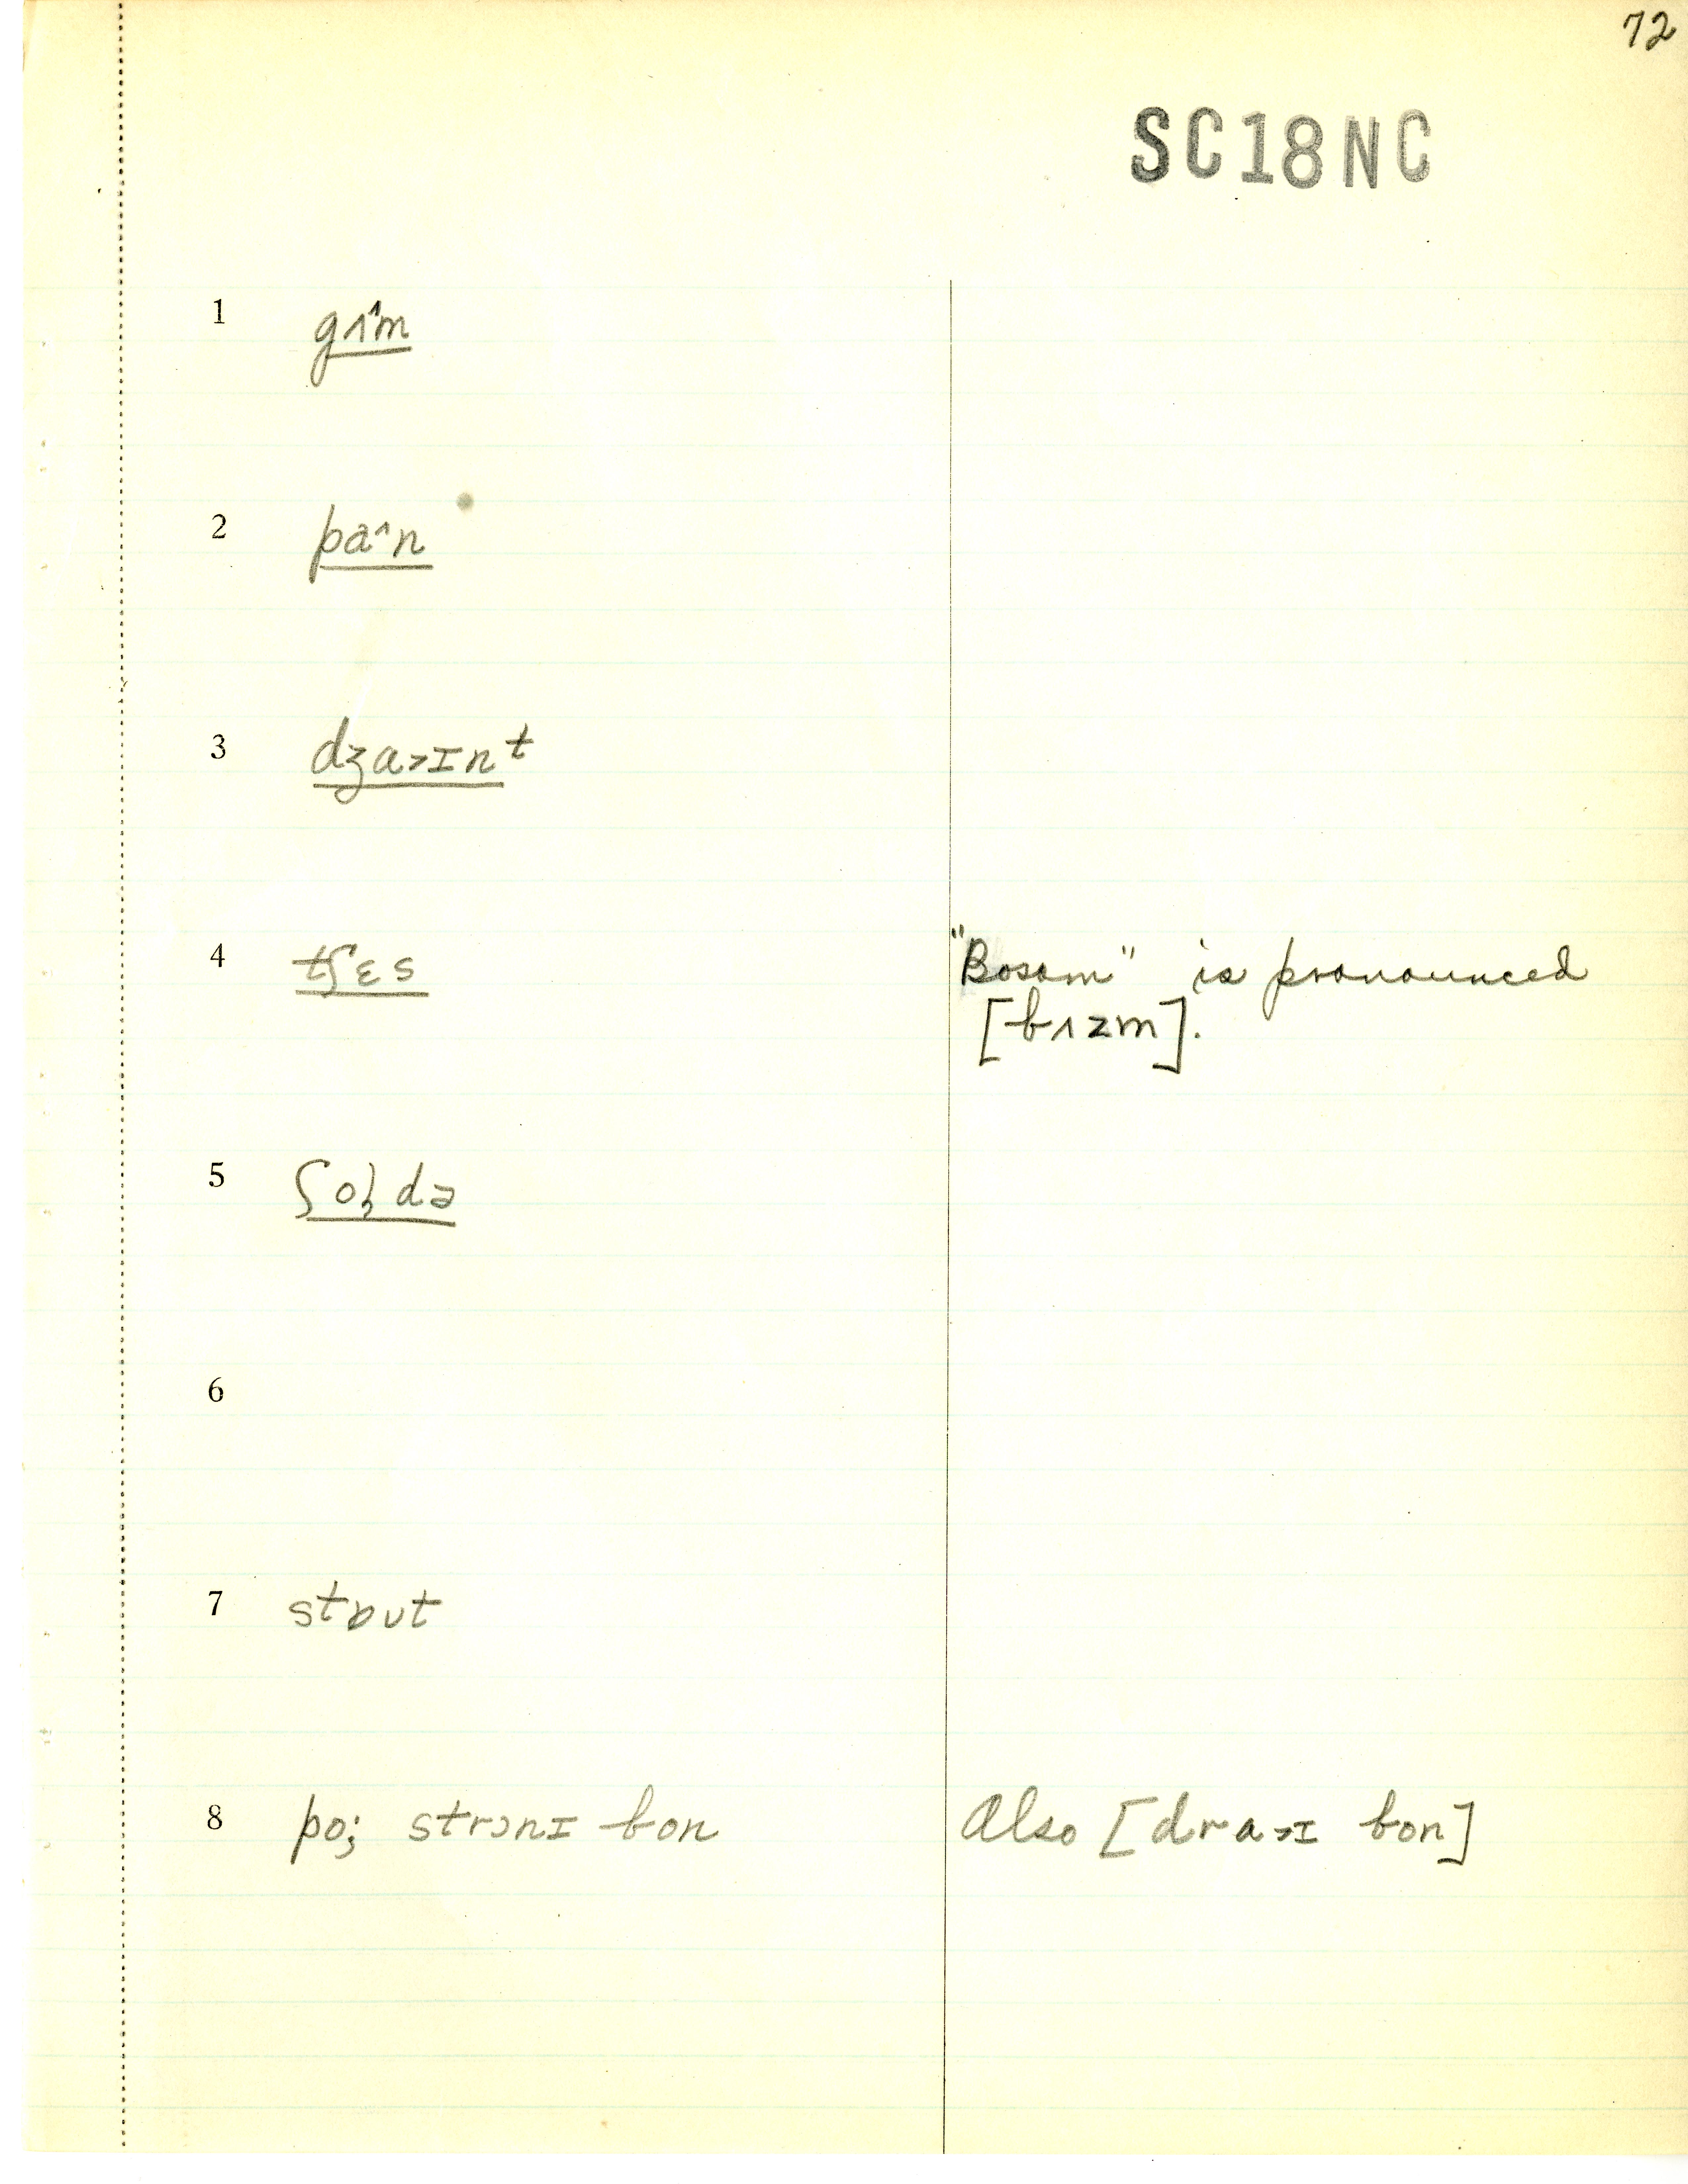 72
SC18NC
1 gʌˆm
2 paˆn
3 dʒa˃ɪnᵗ
4 tʃɛs
"Bosom" is pronounced
[bʌzm].
5 ʃoldə
6
7 stɒʊt
8 po; strɔnɪ bon
Also [dra˃ɪ bon]